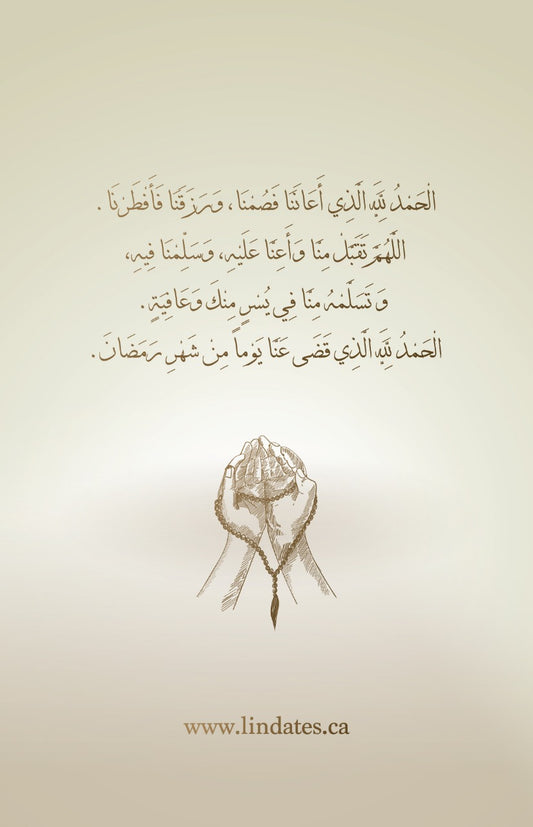 الْحَمْدُ لِلَّهِ الَّذِي أَعَانَنَا فَصُمْنَا، وَرَزَقَنَا فَأَفْطَرْنَا.
اللَّهُمَّ تَقَبَّلْ مِنَّا وَأَعِنَّا عَلَيْهِ، وَسَلِّمْنَا فِيهِ،
وَتَسَلَّمْهُ مِنَّا فِي يُسْرٍ مِنْكَ وَعَافِيَةٍ.
الْحَمْدُ لِلَّهِ الَّذِي قَضَى عَنَّا يَوْماً مِنْ شَهْرِ رَمَضَانَ.
www.lindates.ca